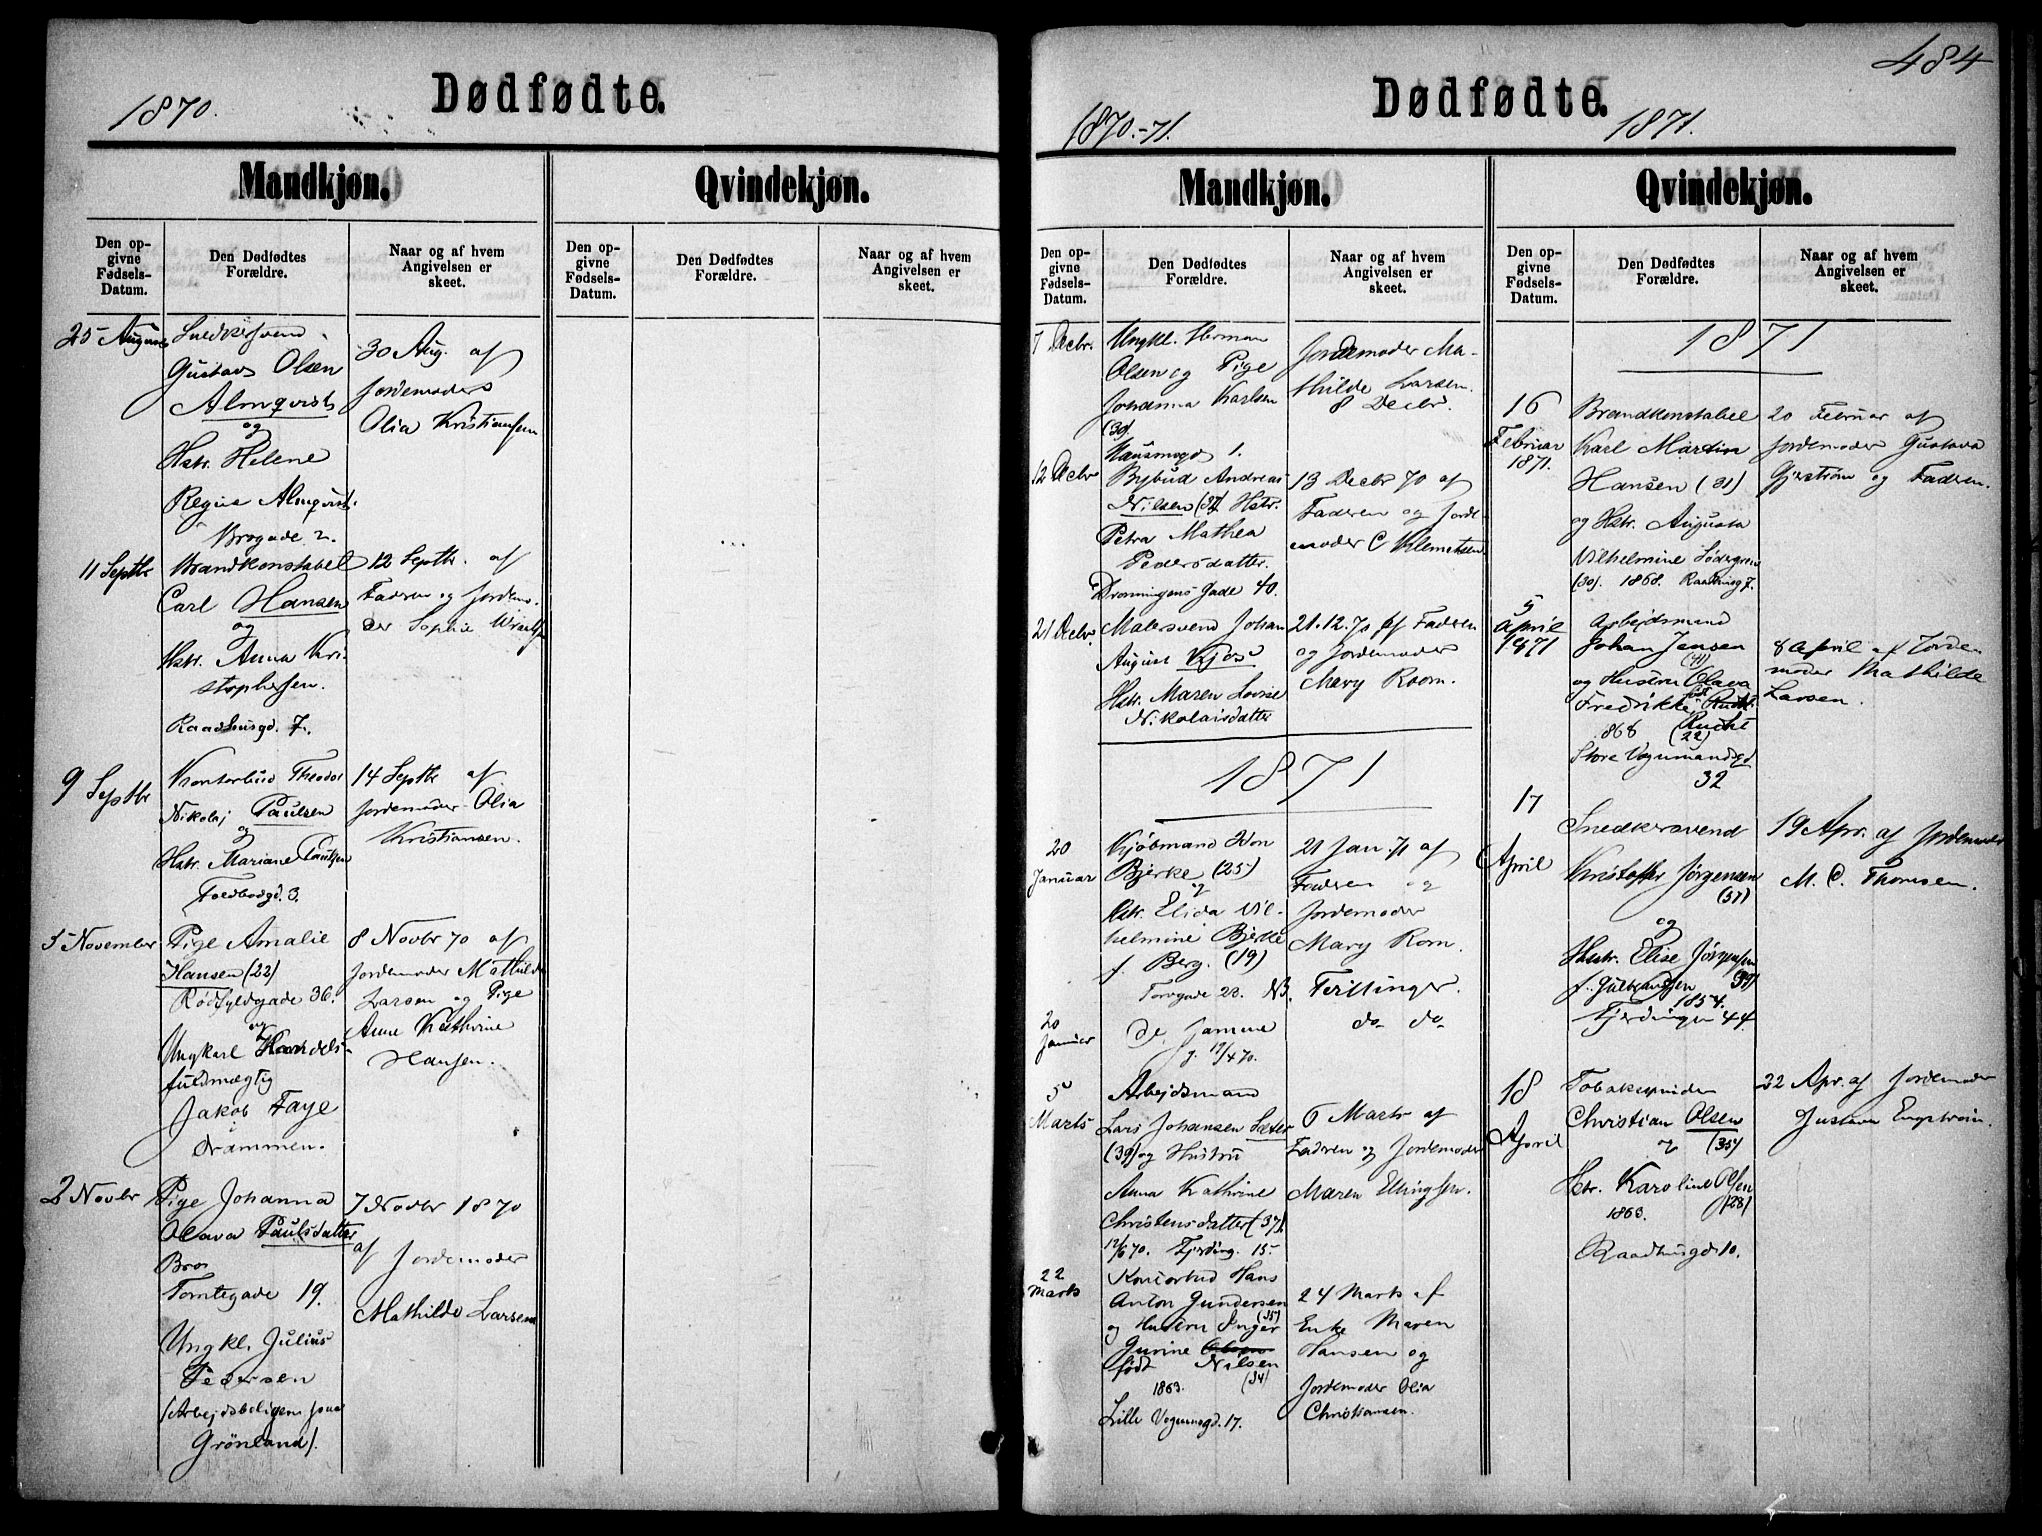 484
1870.
Dødfødte.
Mandkjøn.
Qvindekjøn.
Den op-
givne
Fødsels-
Datum.
Den Dødfødtes
Forældre.
Naar og af hvem
Angivelsen er
skeet.
Den op-
givne
Fødsels-
Datum.
Den Dødfødtes
Forældre.
Naar og af hvem
Angivelsen er
skeet.
25 August
Gustav Olsen
Almqvist
og
Hstr. Helene
Regine Almqvist.
Brogade 2.
30 Aug. af
Jordemoder
Olia Kristiansen
11 Septbr
Brandkonstabel
Carl Hansen
og
Hstr. Anna Kri-
stophersen.
Raadhusgd. 7.
12 Septbr. af
Faderen og Jordemo-
der Sophie
9 Septbr
Kontorbud Theodor
Nikolaj Paulsen
og
Hstr. Mariane Paulsen
Toldbodgd. 3.
14 Septbr af
Jordemoder Olia
Kristiansen.
5 November
Pige Amalie
Hansen (22)
Rødfyldgade 36.
og
Ungkarl Handels-
fuldmægtig
Jakob Faye
Drammen.
8 Novbr 70 af
Jordemoder Mathilde
Larsen og Pige
Anne Kathrine
Hansen.
2 Novbr
Pige Johanna
Olava Paulsdatter
Bros
Tomtegade 19.
Ungkl. Julius
Pedersen
(Arbejdsboligerne
Grønland).
7 Novbr 1870
af Jordemoder
Mathilde Larsen
1870.-71.
Dødfødte.
1871.
Mandkjøn.
Qvindekjøn.
Den op-
givne
Fødsels-
Datum.
Den Dødfødtes
Forældre.
Naar og af hvem
Angivelsen er
skeet.
Den op-
givne
Fødsels-
Datum.
Den Dødfødtes
Forældre.
Naar og af hvem
Angivelsen er
skeet.
7 Decbr.
Ungkl. Herman
Olsen og Pige
Johanna Karlsen
(30).
1.
Jordemoder Ma-
thilde Larsen.
8 Decbr.
12 Decbr
Bybud Andreas
Nilsen (37) Hstr.
Petra Mathea
Pedersdatter.
Dronningens Gade 40.
13 Decbr 70 af
Faderen og Jorde-
moder C Klemetsen
21 Decbr
Malersvend Johan
August Kjøs
Hstr. Maren Lovise
Nikolaisdatter
21.12.70 af Faderen
og Jordemoder
Mary Room.
1871
20
Januar
Kjøbmand
Bjerke (25)
og
Hstr. Elida Vil-
helmine Bjerke
f. Berg. (19)
Torvgade 28. NB.
21 Jan. 71 af
Faderen og
Jordemoder
Mary Rom.
Tvillinger.
20
Januar
De samme
g. 12/4 70.
do do
5
Marts
Arbejdsmand
Lars Johansen Sæter
(39) og Hustru
Anna Kathrine
Christensdatter (37).
12/6 70. Fjerding. 15.
6 Marts af
Faderen og Jordemoder
Maren Ellingsen.
22
Marts
Kontorbud Hans
Anton Gundersen
(35)
og Hustru Inger
Gurine
født Nilsen
1863. (34)
Lille Vognmgd. 17.
24 Marts af
Enke Maren
Hansen og
Jordemoder Olia
Christiansen.
1871
16
Februar
1871.
Brandkonstabel
Karl Martin
Hansen (31)
og Hstr. Augusta
Vilhelmine Södergren
(30). 1868. Raadhusg 7.
20 Februar af
Jordemoder Gustava
og Faderen.
5
April
1871
Arbejdsmand
Johan Jensen
(41)
og Hustru Olava
Fredrikke født
868 (22)
Store Vognmandsgd
32
8 April af Jorde-
moder Mathilde
Larsen.
17
April
Snedkersvend
Kristoffer Jörgensen
(37)
og
Hustr. Elise Jörgensen
(39)
f. Gulbrandsen
1854.
Fjerdingen 44
19 Apr. af Jordemoder
M. C. Thomsen.
18
April
Tobakspinder
Christian Olsen
og (35)
Hstr. Karoline Olsen
1863. (28)
Raadhusgd 10.
22 Apr. af Jordemoder
Gustava Engström.